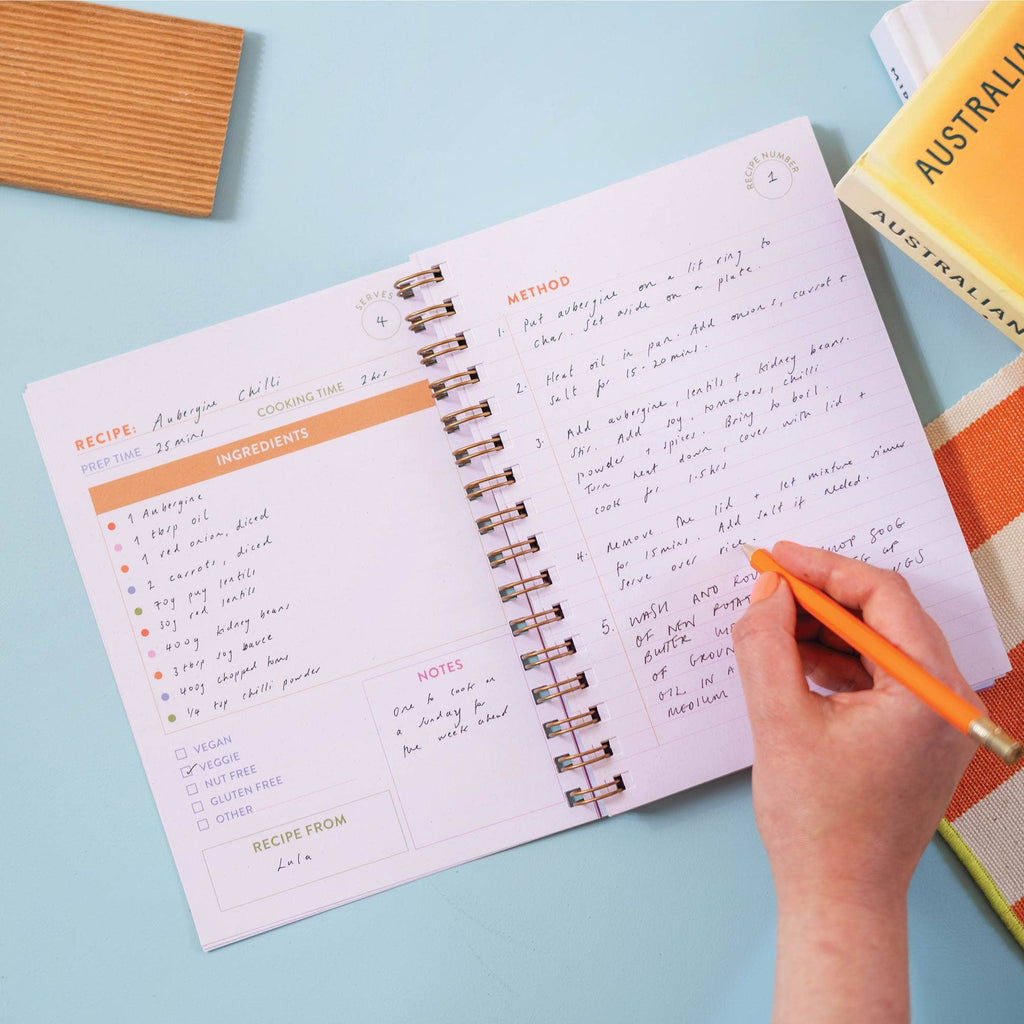 SERVES
4
RECIPE: Aubergine Chilli
PREP TIME 25 mins COOKING TIME 2hrs
INGREDIENTS
1 Aubergine
1 tbsp oil
1 red onion, diced
2 carrots, diced
70g puy lentils
30g red lentils
400g kidney beans
3 tbsp soy sauce
400g chopped toms
1/4 tsp chilli powder
VEGAN
VEGGIE
NUT FREE
GLUTEN FREE
OTHER
NOTES
One to cook on
a Sunday for
the week ahead
RECIPE FROM
Lula
RECIPE NUMBER
1
METHOD
1. Put aubergine on a lit ring to
char. Set aside on a plate.
2. Heat oil in pan. Add onions, carrot +
salt for 15-20 mins.
3. Add aubergine, lentils + kidney beans.
Stir. Add soy, tomatoes, chilli
powder + spices. Bring to boil.
Turn heat down, cover with lid +
cook for 1.5hrs
4. Remove the lid + let mixture simmer
for 15 mins. Add salt if needed.
Serve over rice.
5. WASH AND 500G
OF NEW UP
BUTTER
OF
OIL IN A
MEDIUM
AUSTRALIA
AUSTRALIAN